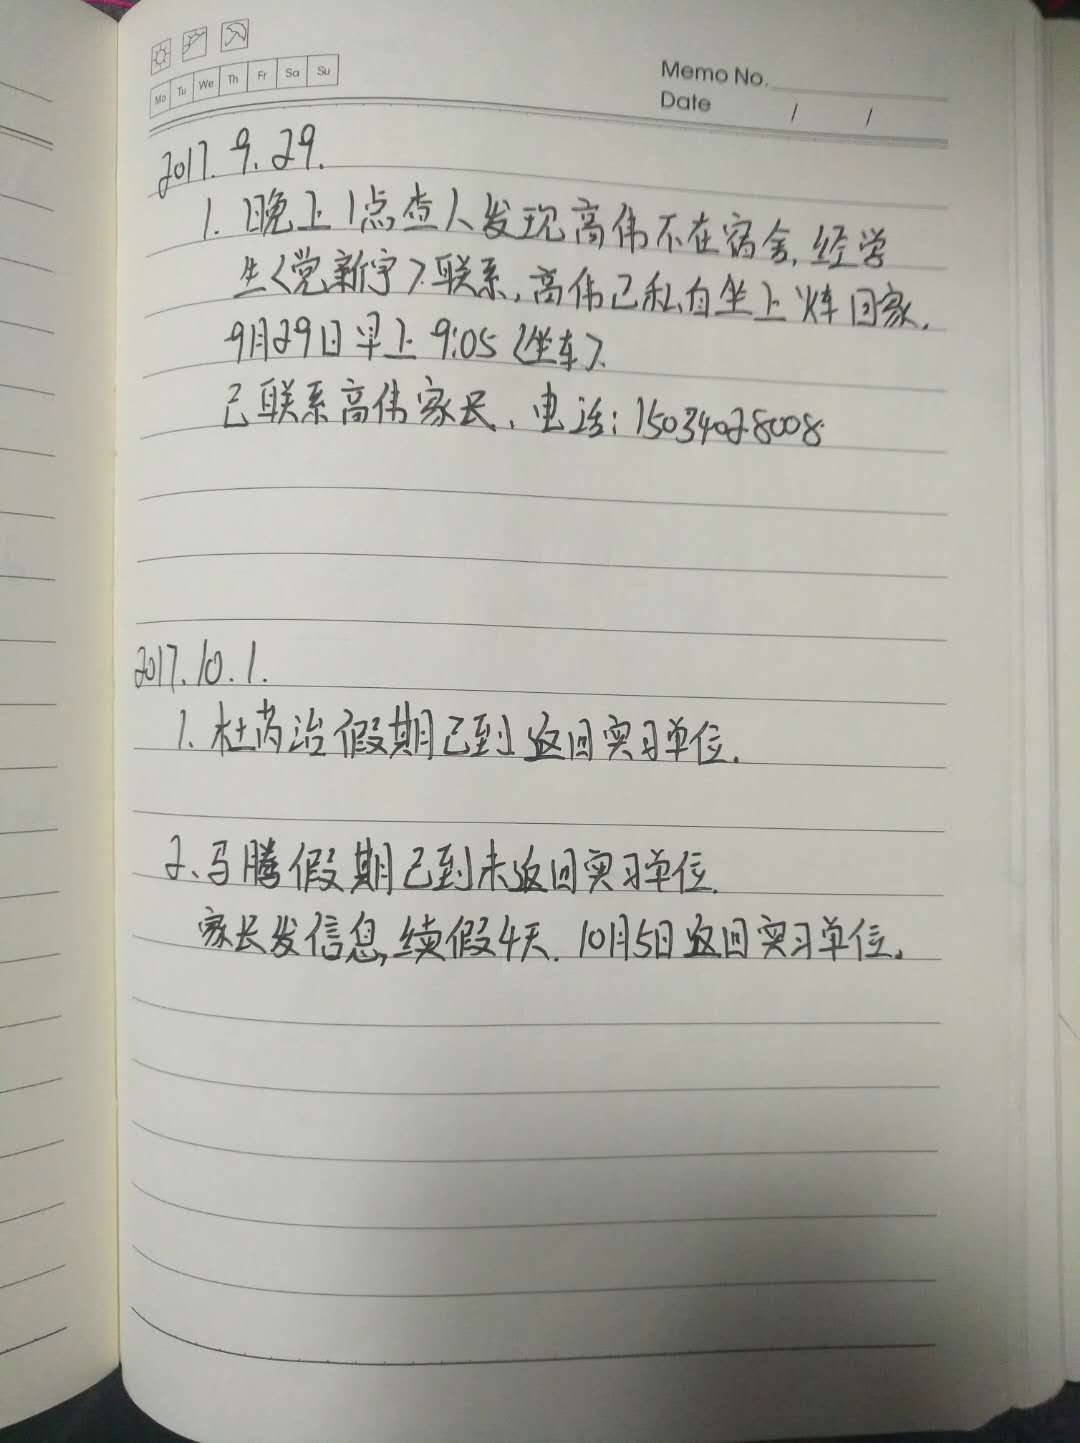 Mo Tu We Th Fr Sa Su
Memo No.
Date / /
2017.9.29.
1. 晚上1点查人发现高伟不在宿舍,经学
生<党新宇>联系,高伟已私自坐上火车回家.
9月29日早上9:05<坐车>.
已联系高伟家长.电话:15034028008
2017.10.1.
1.杜芮治假期已到返回实习单位.
2、马腾假期已到未返回实习单位.
家长发信息,续假4天.10月5日返回实习单位.